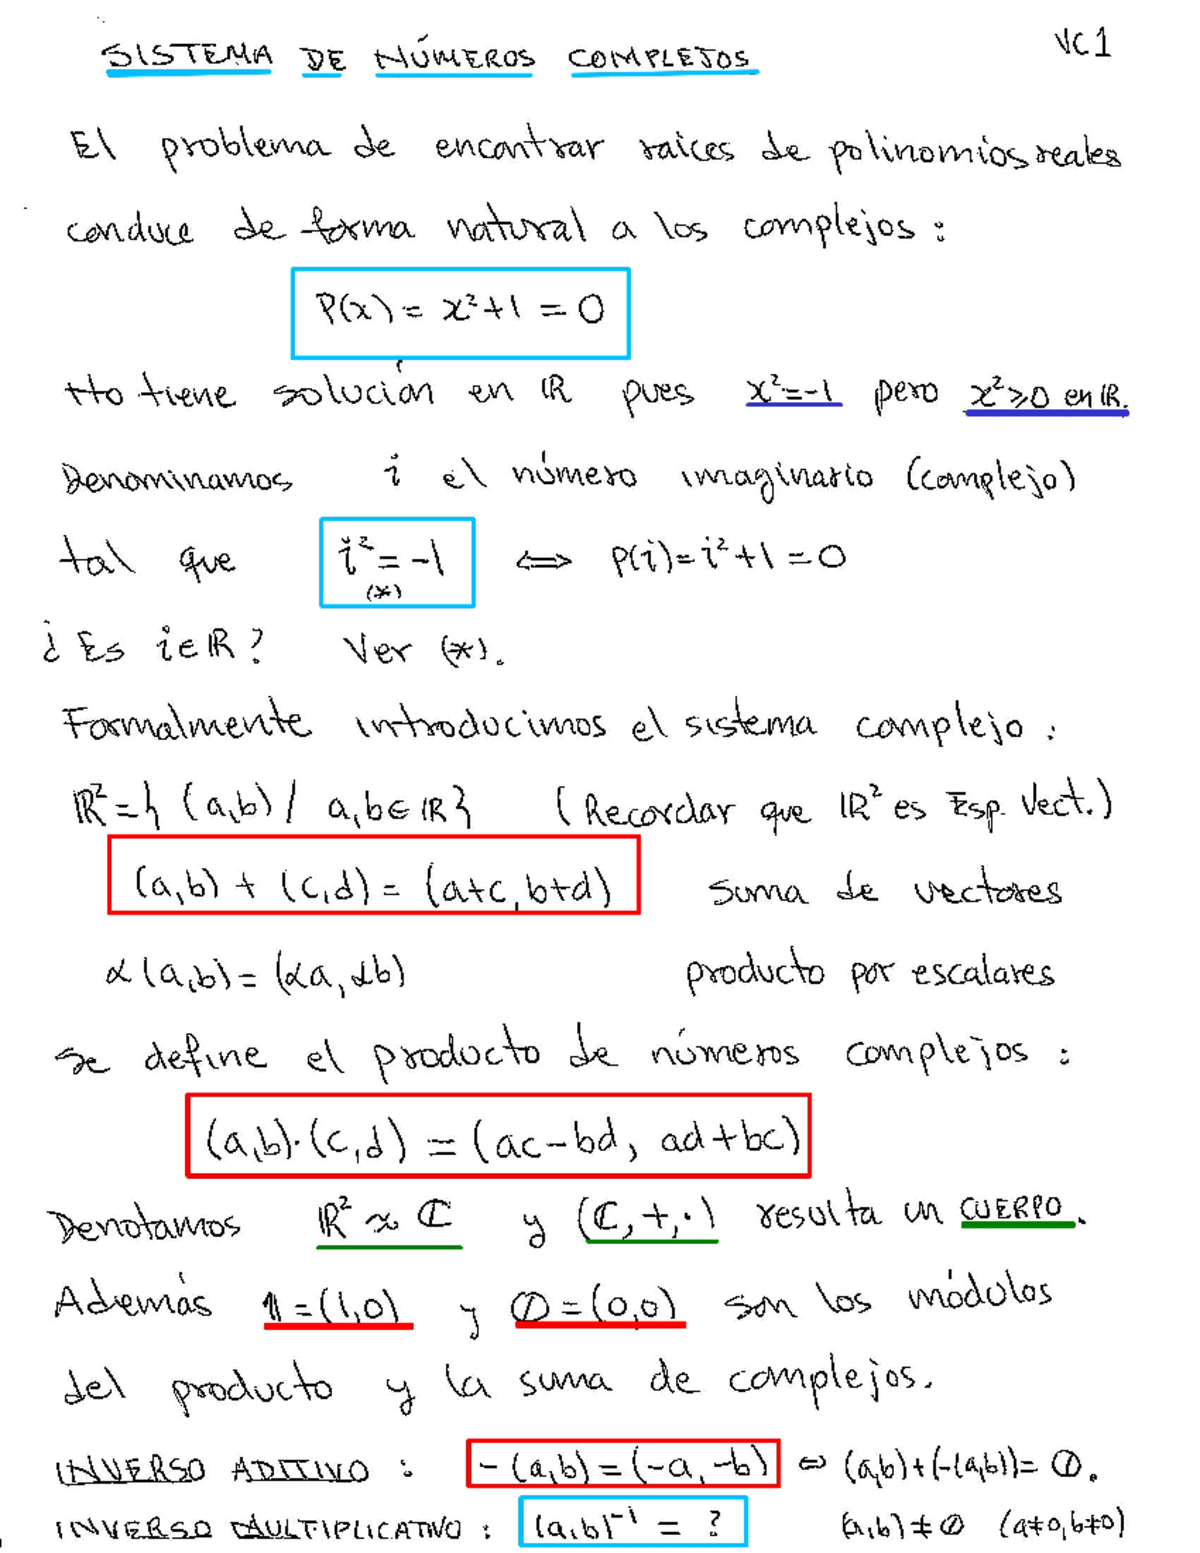 SISTEMA DE NÚMEROS COMPLEJOS VC1
El problema de encontrar raices de polinomios reales
conduce de forma natural a los complejos:
P(x) = x²+1 = 0
No tiene solución en ℝ pues x²=-1 pero x²≥0 en ℝ.
Denominamos i el número imaginario (complejo)
tal que i²=-1 ⟺ P(i)=i²+1=0
(*)
¿Es i∈ℝ? Ver (*).
Formalmente introducimos el sistema complejo:
ℝ²={ (a,b) / a,b∈ℝ} (Recordar que ℝ² es Esp. Vect.)
(a,b) + (c,d) = (a+c, b+d) suma de vectores
α(a,b)=(αa, αb) producto por escalares
Se define el producto de números complejos:
(a,b)·(c,d) = (ac-bd, ad+bc)
Denotamos ℝ² ≈ ℂ y (ℂ,+,·) resulta un CUERPO.
Además 𝟙=(1,0) y 𝕆=(0,0) son los módulos
del producto y la suma de complejos.
INVERSO ADITIVO: -(a,b)=(-a,-b) ⇔ (a,b)+(-(a,b))=𝕆.
INVERSO MULTIPLICATIVO: (a,b)⁻¹ = ? (a,b)≠𝕆 (a≠0,b≠0)